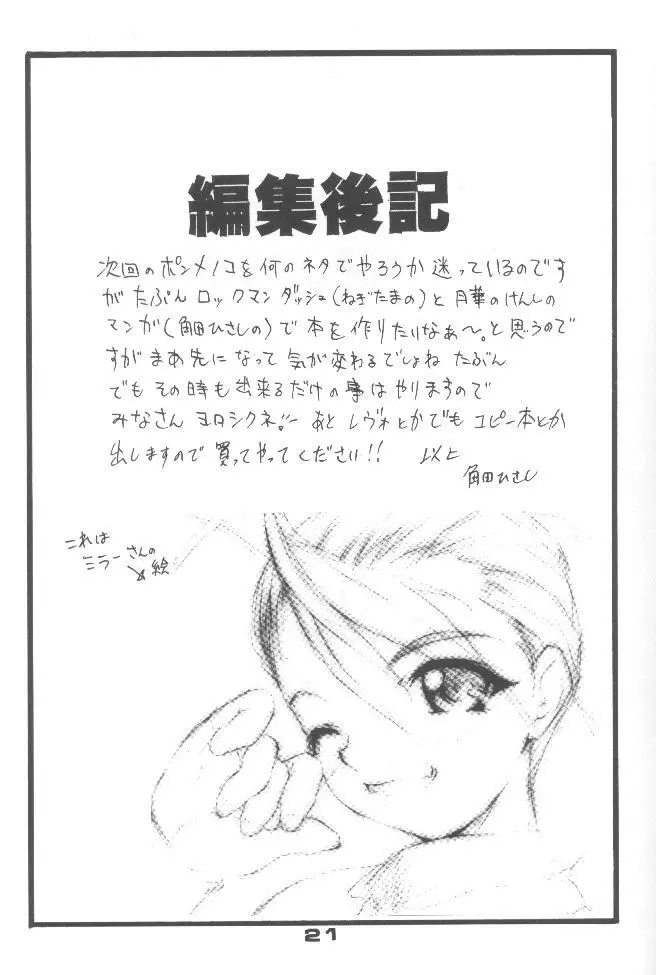 編集後記
次回のポンメノコを何のネタでやろうか迷っているのです
がたぶんロックマンダッシュ(ねぎたまの)と月華のけんしの
マンガ(角田ひさしの)で本を作りたいなぁ〜。と思うので
すがまあ先になって気が変わるでしょね たぶん
でもその時も出来るだけの事はやりますので
みなさんヨロシクネ。 あと レヴォとかでも コピー本とか
出しますので買ってやってください!! 以上
角田ひさし
これは
ミラーさんの
絵
21